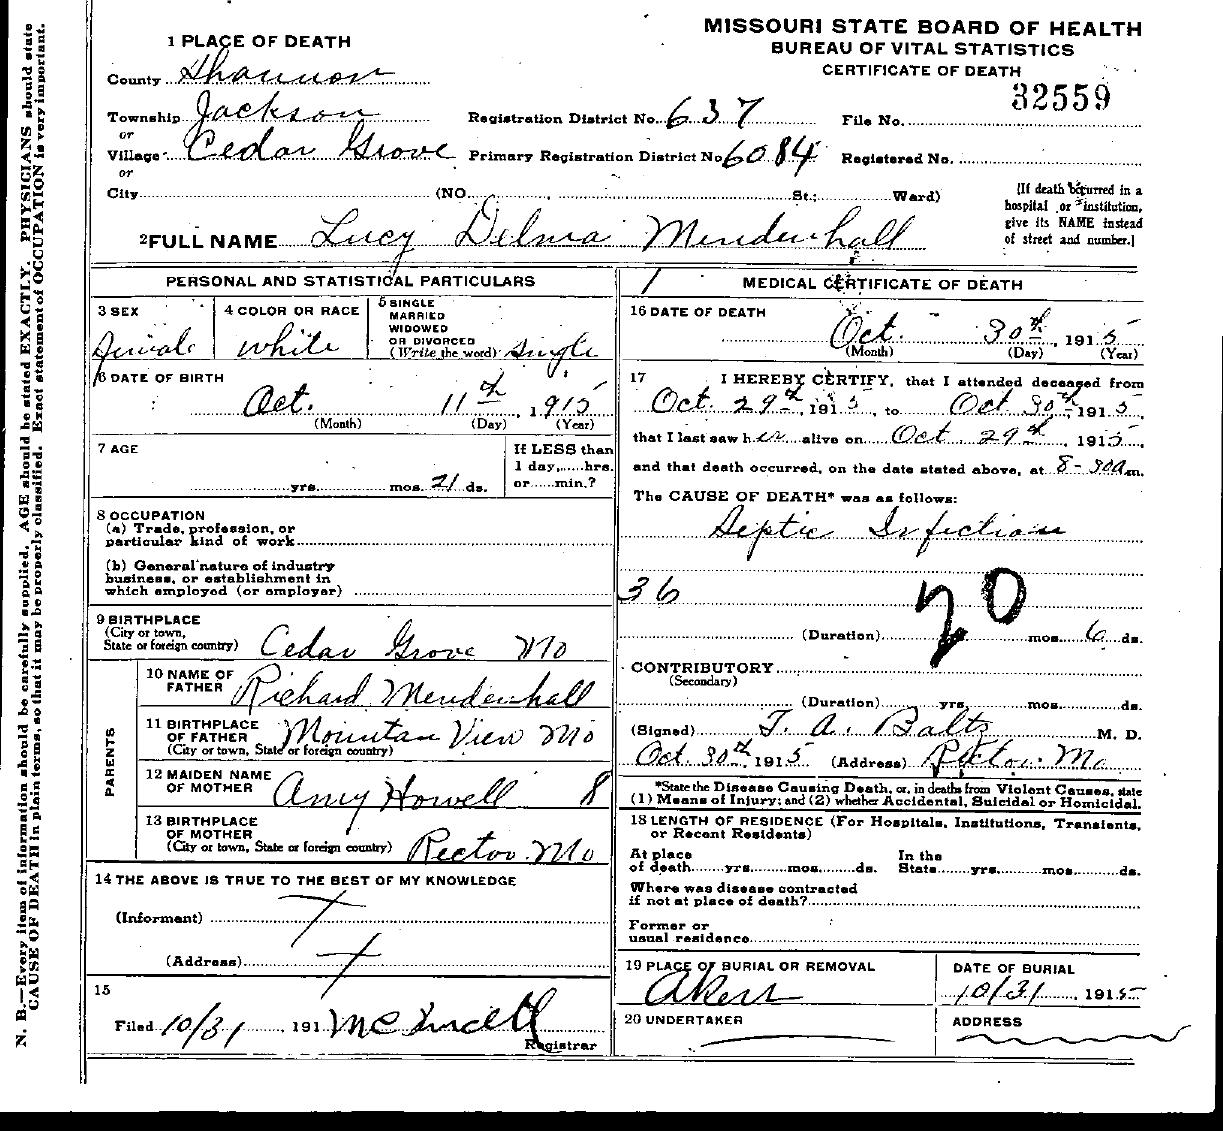 MISSOURI STATE BOARD OF HEALTH
BUREAU OF VITAL STATISTICS
CERTIFICATE OF DEATH
1 PLACE OF DEATH
County Shannon
32559
Township Jackson Registration District No. 637 File No.
or
Village Cedar Grove Primary Registration District No 6084 Registered No.
or
City (NO. St.; Ward)
(If death occurred in a hospital or institution, give its NAME instead of street and number.]
2 FULL NAME Lucy Delma Mendenhall
PERSONAL AND STATISTICAL PARTICULARS
3 SEX Female
4 COLOR OR RACE White
5 SINGLE MARRIED WIDOWED OR DIVORCED (Write the word) Single
6 DATE OF BIRTH
Oct. 11th, 1915
(Month) (Day) (Year)
7 AGE
yrs. mos. 21 ds.
If LESS than 1 day, hrs. or min.?
8 OCCUPATION
(a) Trade, profession, or
particular kind of work
(b) General nature of industry
business, or establishment in
which employed (or employer)
9 BIRTHPLACE
(City or town,
State or foreign country) Cedar Grove Mo
PARENTS
10 NAME OF FATHER Richard Mendenhall
11 BIRTHPLACE OF FATHER Mountain View Mo
(City or town, State or foreign country)
12 MAIDEN NAME OF MOTHER Amy Howell 8
13 BIRTHPLACE OF MOTHER
(City or town, State or foreign country) Rector Mo
14 THE ABOVE IS TRUE TO THE BEST OF MY KNOWLEDGE
(Informant)
(Address)
15
Filed 10/31, 191
Registrar
MEDICAL CERTIFICATE OF DEATH
16 DATE OF DEATH
Oct. 30th, 1915
(Month) (Day) (Year)
17 I HEREBY CERTIFY, that I attended deceased from
Oct. 29th, 1915, to Oct 30th 1915,
that I last saw her alive on Oct 29th, 1915,
and that death occurred, on the date stated above, at 8-30am.
The CAUSE OF DEATH* was as follows:
Septic Infection
36
20
(Duration) mos. 6 ds.
CONTRIBUTORY
(Secondary)
(Duration) yrs. mos. ds.
(Signed) T. A. Baltz M. D.
Oct. 30th, 1915 (Address) Rector. Mo
*State the Disease Causing Death, or, in deaths from Violent Causes, state
(1) Means of Injury; and (2) whether Accidental, Suicidal or Homicidal.
18 LENGTH OF RESIDENCE (For Hospitals, Institutions, Transients,
or Recent Residents)
At place In the
of death yrs. mos. ds. State yrs. mos. ds.
Where was disease contracted
if not at place of death?
Former or
usual residence
19 PLACE OF BURIAL OR REMOVAL DATE OF BURIAL
Akers 10/31, 1915
20 UNDERTAKER ADDRESS
N. B.—Every item of information should be carefully supplied. AGE should be stated EXACTLY. PHYSICIANS should state
CAUSE OF DEATH in plain terms, so that it may be properly classified. Exact statement of OCCUPATION is very important.